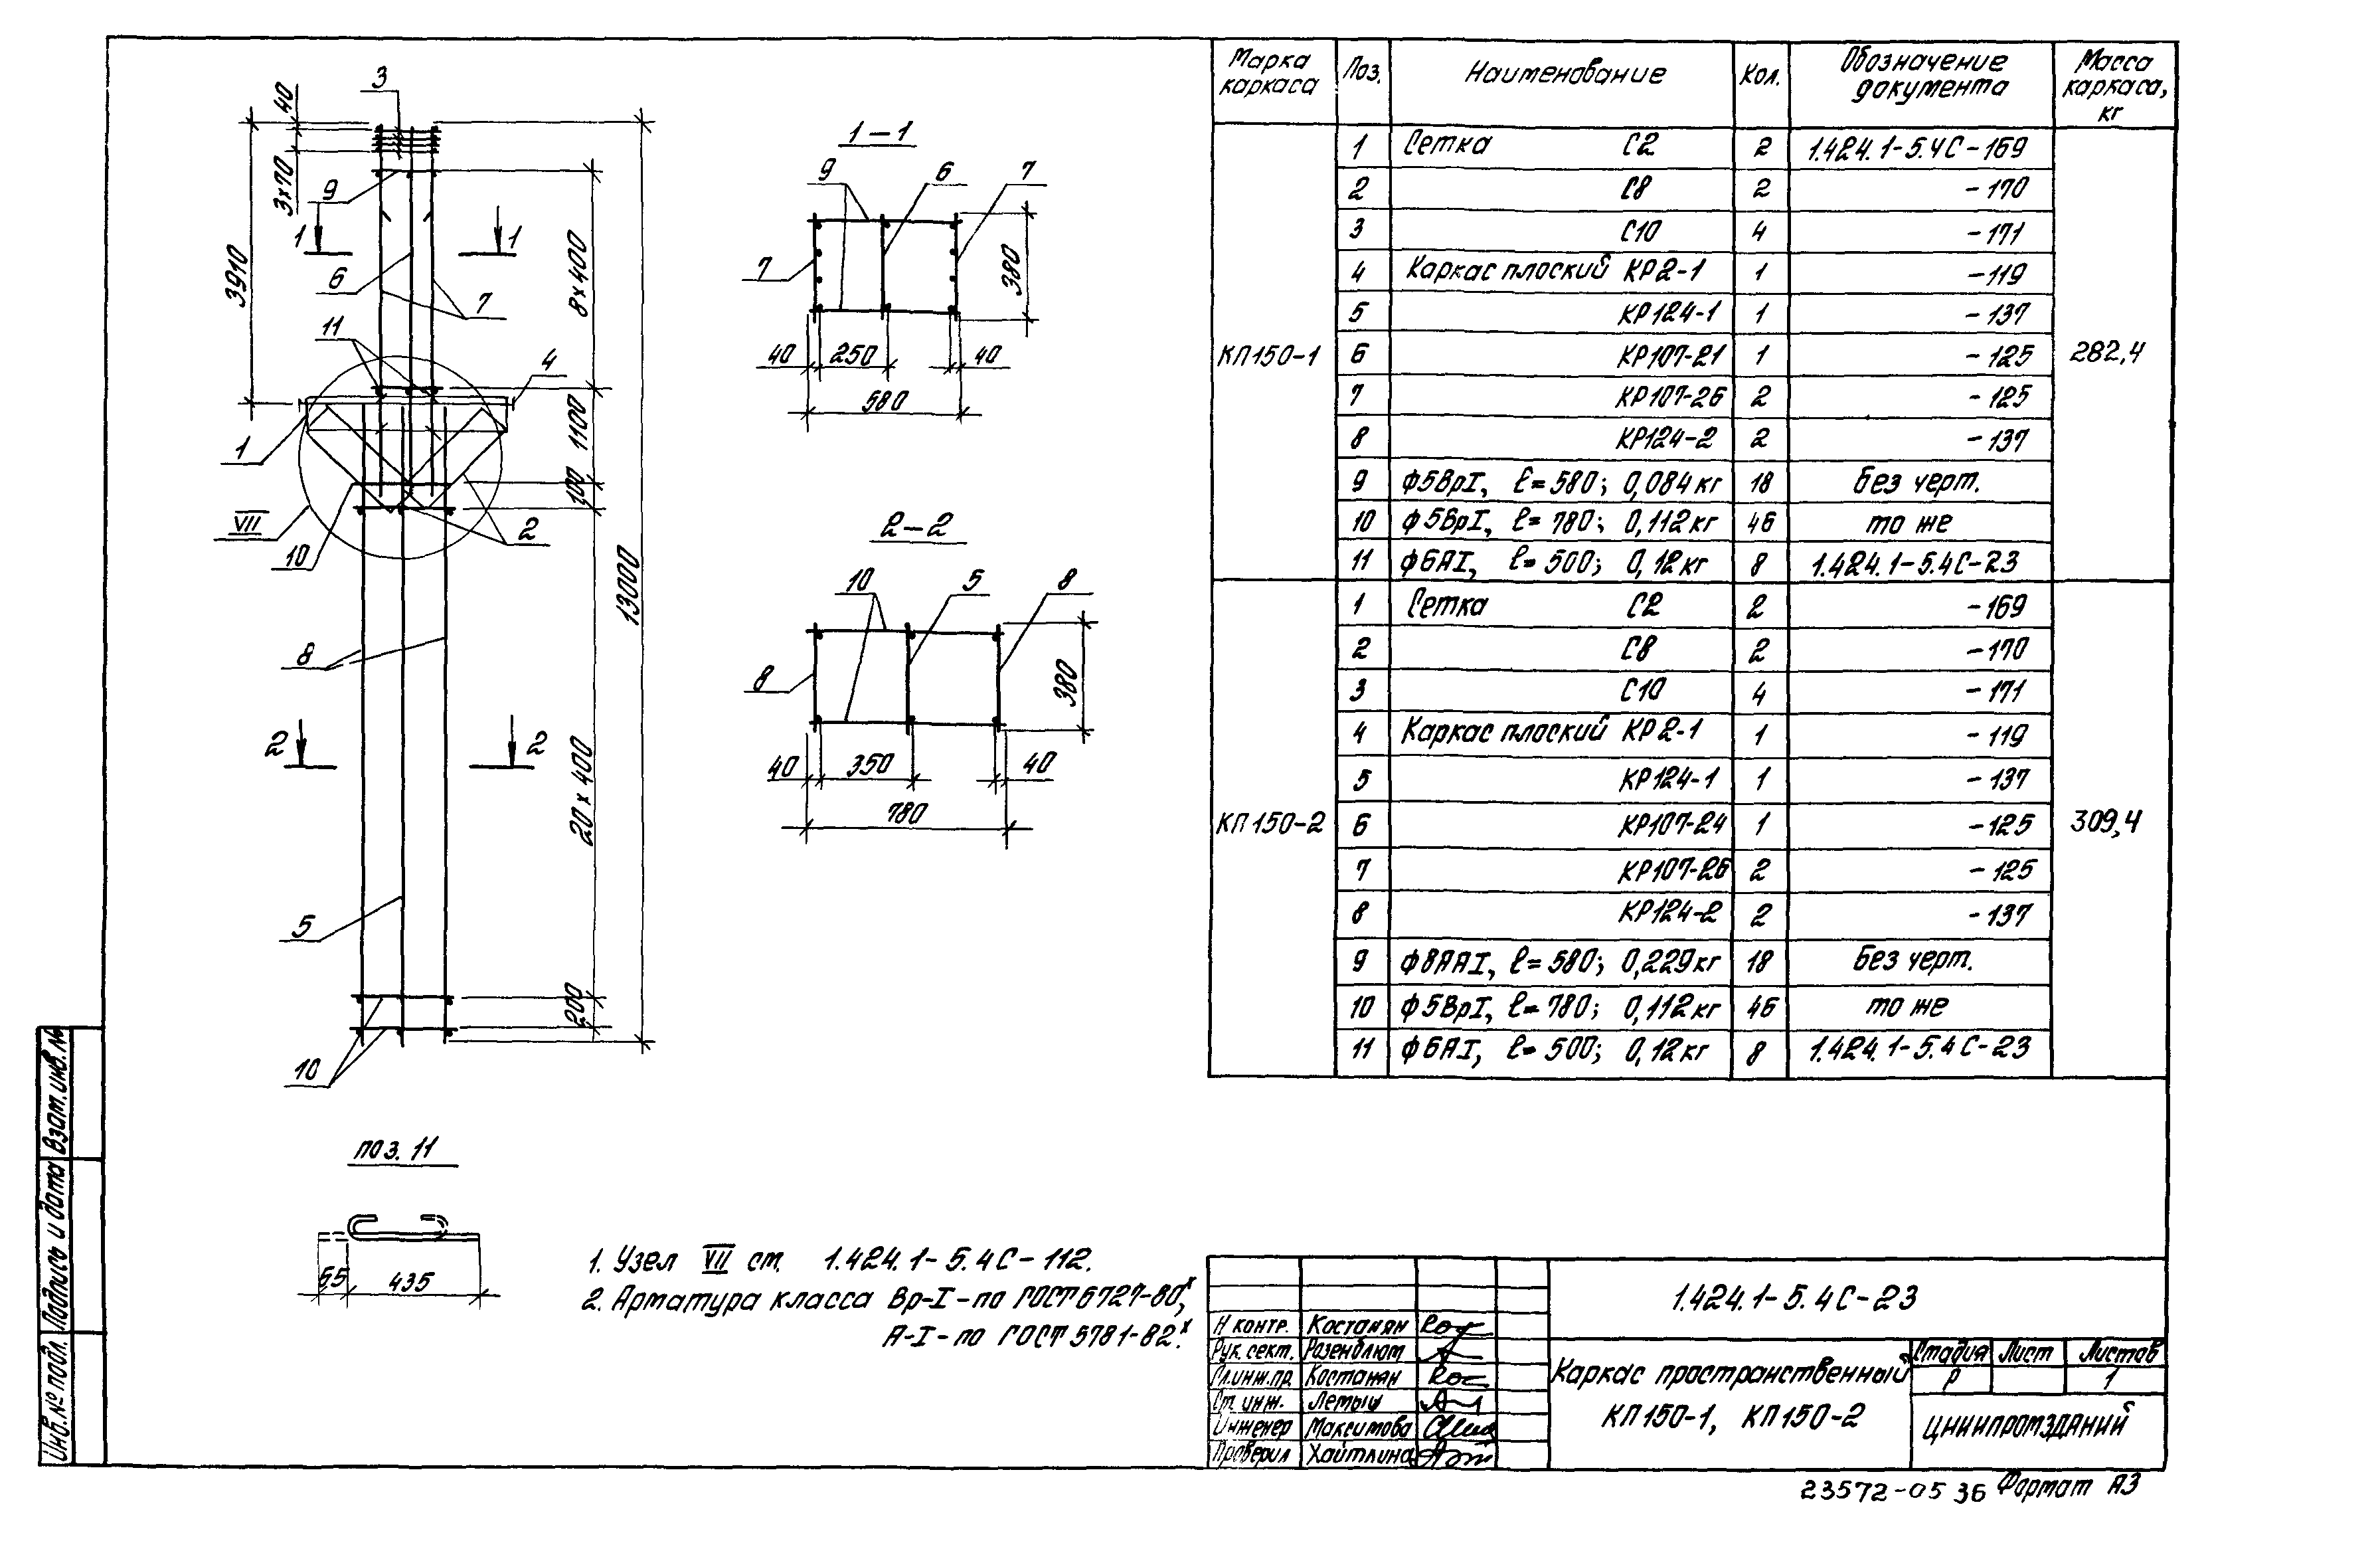 Марка каркаса Поз. Наименование Кол. Обозначение документа Масса каркаса, кг
КП150-1 282,4
1 Сетка С2 2 1.424.1-5.4С-169
2 С8 2 -170
3 С10 4 -171
4 Каркас плоский КР2-1 1 -119
5 КР124-1 1 -137
6 КР107-21 1 -125
7 КР107-26 2 -125
8 КР124-2 2 -137
9 ф5ВрI, ℓ=580; 0,084кг 18 Без черт.
10 ф5ВрI, ℓ=780; 0,112кг 46 то же
11 ф6АI, ℓ=500; 0,12кг 8 1.424.1-5.4С-23
КП150-2 309,4
1 Сетка С2 2 -169
2 С8 2 -170
3 С10 4 -171
4 Каркас плоский КР2-1 1 -119
5 КР124-1 1 -137
6 КР107-24 1 -125
7 КР107-26 2 -125
8 КР124-2 2 -137
9 ф8ААI, ℓ=580; 0,229кг 18 Без черт.
10 ф5ВрI, ℓ=780; 0,112кг 46 то же
11 ф6АI, ℓ=500; 0,12кг 8 1.424.1-5.4С-23
3
40
3х70
9
1 1
3910
6
7
8х400
11
4
1
1100
100
VII
2
10
13000
8
2 2
20х400
5
200
10
1-1
9 6 7
7
380
40 250 40
580
2-2
10 5 8
8
380
40 350 40
780
поз. 11
55 435
1. Узел VII см. 1.424.1-5.4С-112.
2. Арматура класса Вр-I-по ГОСТ 6727-80х,
А-I-по ГОСТ 5781-82х.
Взам. инв. №
Подпись и дата
Инв. № подл.
Н контр. Костанян
Рук. сект. Розенблют
Гл. инж. пр. Костанян
Ст. инж. Летыш
Инженер Макситова
Проверил Хайтлина
1.424.1-5.4С-23
Каркас пространственный
КП150-1, КП150-2
Стадия Лист Листов
Р 1
ЦНИИПРОМЗДАНИЙ
23572-05 36 Формат А3